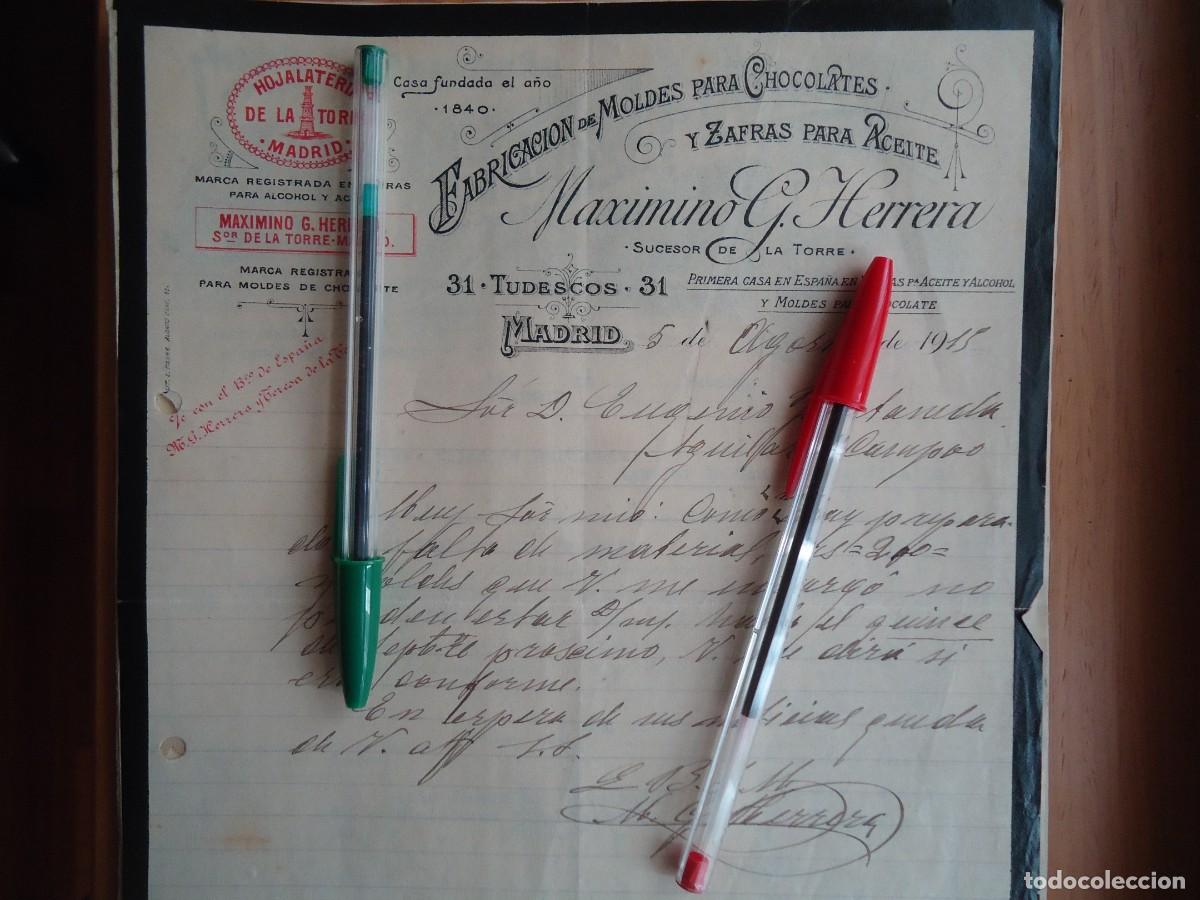 HOJALATERI
DE LA TOR
· MADRID ·
MARCA REGISTRADA EN
PARA ALCOHOL Y AC
MAXIMINO G. HER
Sor DE LA TORRE-M
MARCA REGISTRA
PARA MOLDES DE
Casa fundada el año
· 1840 ·
FABRICACION DE MOLDES PARA CHOCOLATES ·
Y ZAFRAS PARA ACEITE
Maximino G. Herrera
· SUCESOR DE LA TORRE ·
31 · TUDESCOS · 31
PRIMERA CASA EN ESPAÑA EN AS PA ACEITE Y ALCOHOL
Y MOLDES PA OCOLATE
MADRID 5 de Agos de 1915
Cte con el Bco de España
M. G. Herrera y Teresa de la
Sór D. Eugenio
Aguilar Campoo
Muy Sór mio: Como hay prepara-
do falta de material, =200=
moldes que V. me encargó no
pueden estar hasta el quince
de Septbe procsimo, V. me dirá si
es conforme.
En espera de sus noticias queda
de V. aff S.S.
M. G. Herrera
todocoleccion